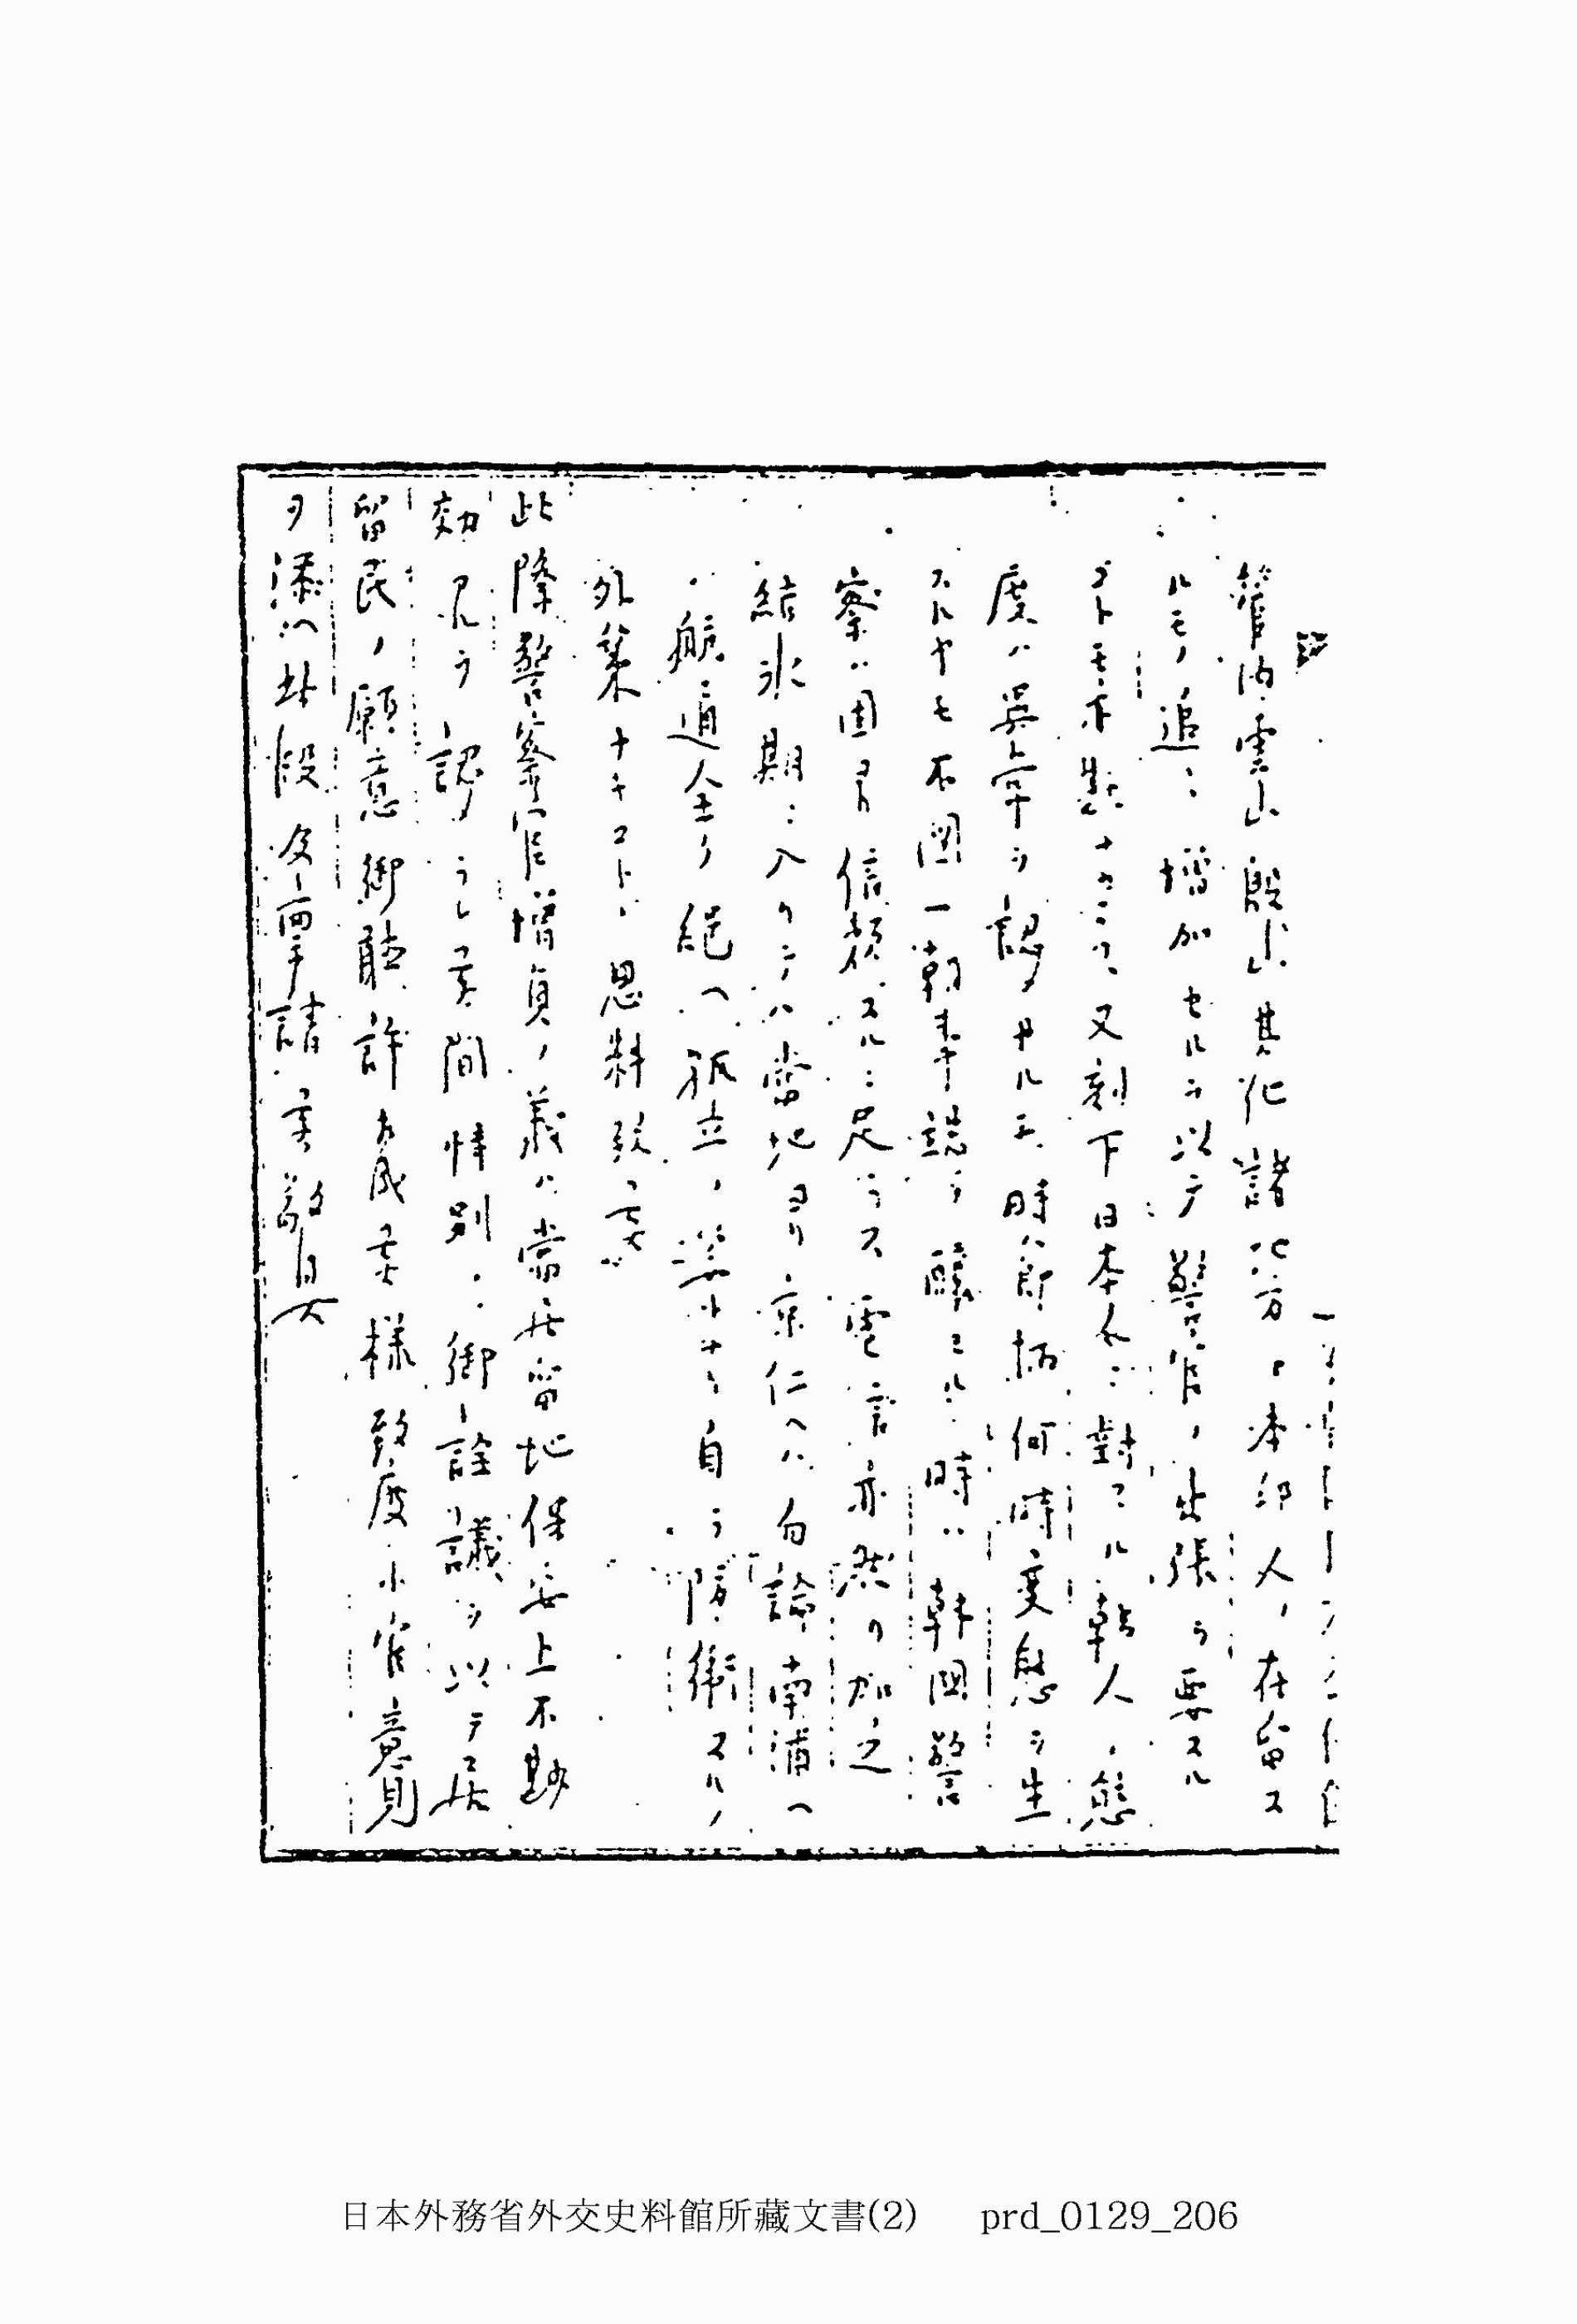 管内雲山殷山其他諸地方日本邦人ノ在留ス
ルモノ追々増加セルヲ以テ警官ノ出張ヲ要スル
コトモ不尠ナカラス又刻下日本人ニ對スル韓人ノ態
度ハ異常ヲ認メサルモ時節柄何時変態ヲ生
スルヤモ不図一朝事端ヲ醸スル時ハ韓国警
察ハ固ヨリ信頼スルニ足ラス電信亦然リ加之
結氷期ニ入リテハ当地ヨリ京仁ヘハ勿論南浦ヘ
ノ航通全ク絶ヘ孤立ノ姿トナリ自ラ防衛スルノ
外策ナキコトヽ思料致候
此際警察官増員ノ義ハ当居留地保安上不尠
効果ヲ認メラレ候間特別ノ御詮議ヲ以テ居
留民ノ願意御聴許相成候様致度小官意見
ヲ添ヘ此段及稟請候敬具
日本外務省外交史料館所藏文書(2) prd_0129_206